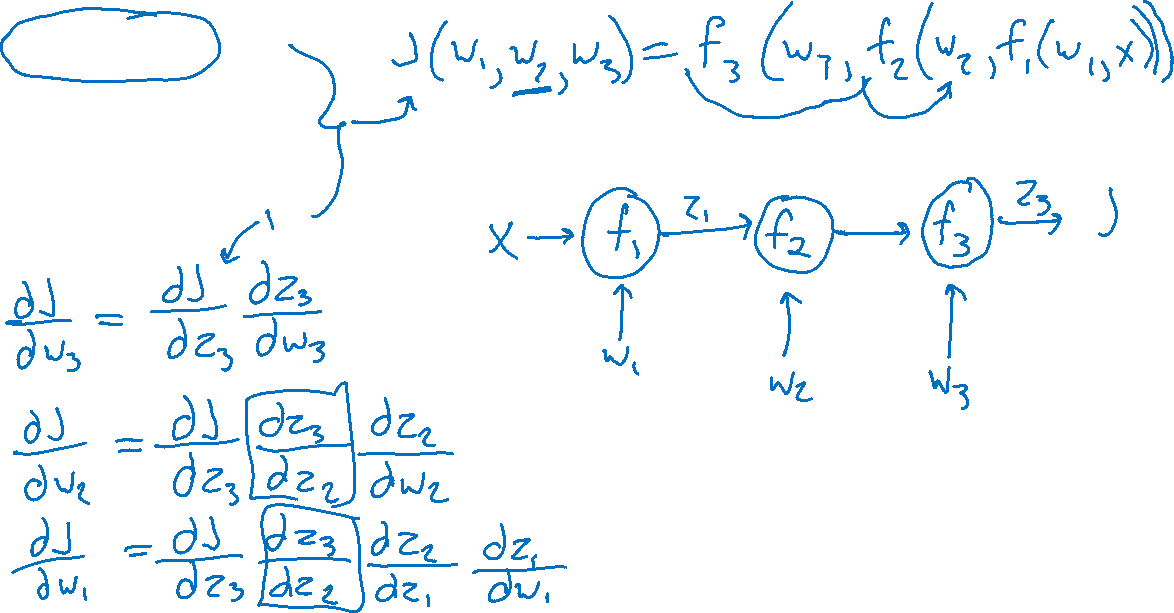 J(w₁, w₂, w₃) = f₃(w₃, f₂(w₂, f₁(w₁, x)))
x → f₁ z₁ → f₂ → f₃ z₃ → J
w₁ w₂ w₃
1
dJ/dw₃ = dJ/dz₃ dz₃/dw₃
dJ/dw₂ = dJ/dz₃ dz₃/dz₂ dz₂/dw₂
dJ/dw₁ = dJ/dz₃ dz₃/dz₂ dz₂/dz₁ dz₁/dw₁